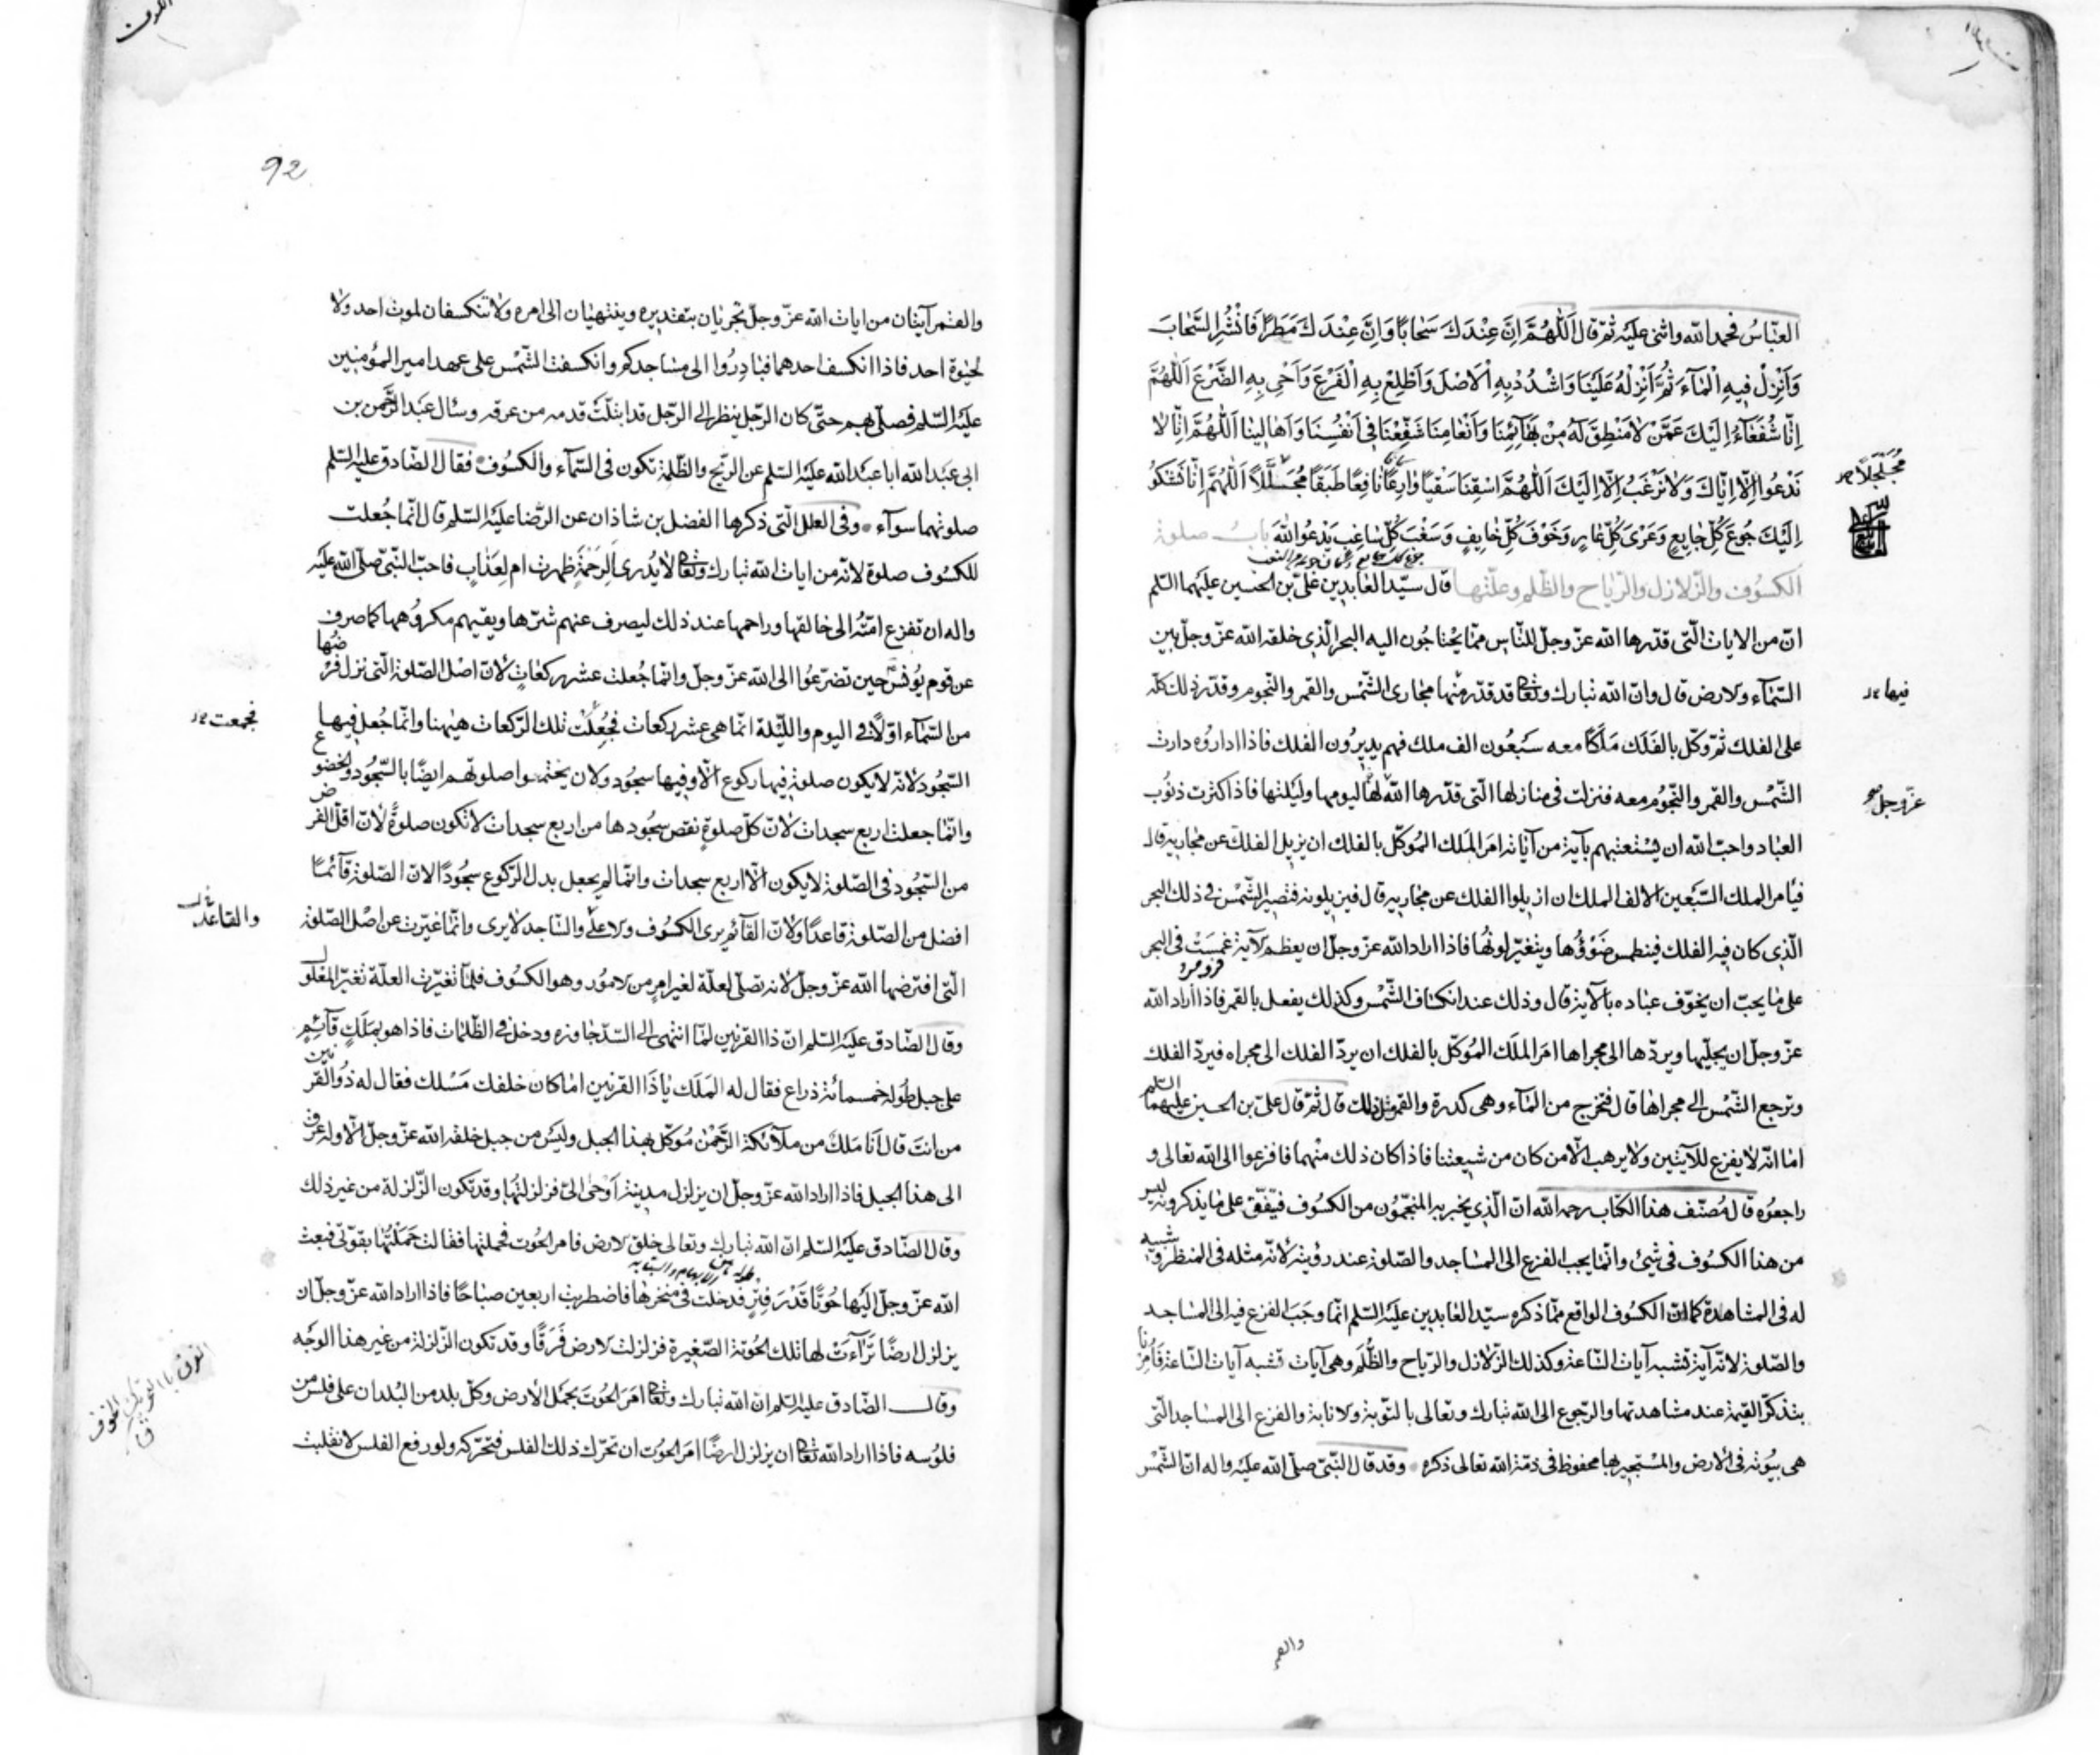 العبّاسُ فحمد الله واثنى عليَه ثمّ قال اَللّٰهُمَّ اِنَّ عِنْدَكَ سَحٰابًا وَاِنَّ عِنْدَكَ مَطَرًا فَانْشُرِ السَّحٰابَ
وَاَنْزِلْ فيهِ الْمٰآءَ ثُمَّ اَنْزِلْهُ عَلَيْنٰا وَاشْدُدْ بِهِ الْاَصْلَ وَاَطْلِعْ بِهِ الْفَرْعَ وَاَحْىِ بِهِ الضَّرْعَ اَللّٰهُمَّ
اِنّٰا شُفَعٰآءُ اِلَيْكَ عَمَّنْ لٰا مَنْطِقَ لَهُ مِنْ بَهٰآئِمِنٰا وَاَنْعٰامِنٰا شَفِّعْنٰا فى اَنْفُسِنٰا وَاَهٰالينٰا اَللّٰهُمَّ اِنّٰا لٰا
نَدْعُوا اِلّٰا اِيّٰاكَ وَلٰا نَرْغَبُ اِلّٰا اِلَيْكَ اَللّٰهُمَّ اسْقِنٰا سَقْيًا وٰادِعًا نٰافِعًا طَبَقًا مُجَلَّلًا اَللّٰهُمَّ اِنّٰا نَشْكُو
مُجَلْجَلًا
اِلَيْكَ جُوعَ كُلِّ جٰايِعٍ وَعُرْىَ كُلِّ عٰارٍ وَخَوْفَ كُلِّ خٰايِفٍ وَسَغَبَ كُلِّ سٰاغِبٍ يَدْعُوا اللهَ بابُ صلوة
الكسُوف والزّلازل والرّياح والظّلم وعلّتها قال سيّد العٰابدين علىّ بن الحسين عليهما السّلم
انّ من الايات الّتى قدّرها الله عزّ وجلّ للنّاس ممّا يحْتاجُون اليه البحر الّذى خلقه الله عزّ وجلّ بين
السّماء والارض قال وانّ الله تبارك وتعالى قد قدّر منْها مجارى الشّمْس والقمر والنّجوم وقدّر ذلك كلّه
فيها
على الفلك ثمّ وكّل بالفَلَك مَلَكًا معه سَبْعُون الف ملك فهم يديرُون الفلك فاذا اداروُه دارت
الشّمْس والقمر والنّجوُم معه فنزلت فى منازلها الّتى قدّرها الله لها ليومها وليْلتها فاذا كثرت ذنوُب
عزّ وجلّ
العباد واحبّ الله ان يسْتعتبهم بآية من آياته امَر المَلَك المُوكّل بالفلك ان يزيل الفلك عن مجاريه قال
فيأمر الملك السّبْعين الالف الملك ان ازيلوا الفلك عن مجاريه قال فيزيلونه فتصير الشّمْس فى ذلك البحر
الّذى كان فيه الفلك فينطمس ضَوْؤُها ويتغيّر لونُها فاذا اراد الله عزّ وجلّ ان يعظم الآية غمسَتْ فى البحر
على ما يحبّ ان يخوّف عباده بالآية قال وذلك عند انكساف الشّمْس وكذلك يفعل بالقمر فاذا اراد الله
عزّ وجلّ ان يجلّيها ويردّها الى مجراها امَر الملَك المُوكّل بالفلك ان يردّ الفلك الى مجراه فيردّ الفلك
وترجع الشّمْس الى مجراها قال فتخرج من المآء وهى كدرة والقمر مثل ذلك قال ثمّ قال علىّ بن الحسين عليهما السّلم
امٰا انّه لٰا يفزع للآيتين ولٰا يرهب الّا من كان من شيعتنا فاذا كان ذلك منْهما فافزعوا الى الله تعالى و
راجعوُه قال مُصنّف هذا الكتاب رحمه الله انّ الّذى يخبر به المنجّموُن من الكسُوف فيتّفق على مٰا يذكرونه ليس
من هذا الكسُوف فى شيْئ وانّما يجب الفزع الى المسٰاجد والصّلوة عند رؤيته لأنّه مثله فى المنظر وشبيه
له فى المشاهدة كما انّ الكسُوف الواقع ممّا ذكره سيّد العابدين عليَه السّلم انّما وجَبَ الفزع فيه الى المسٰاجد
والصّلوة لانّه آية تشبه آيات السّاعة وكذلك الزّلازل والرّياح والظُّلَم وهى آيات تشبه آيات السّاعة فَاُمِرْنٰا
بتذكّر القيمة عند مشاهدتها والرّجوع الى الله تبارك وتعالى بالتّوبة والانابة والفزع الى المساجد الّتى
هى بيُوته فى الأرض والمُسْتجير بها محفوظ فى ذمّة الله تعالى ذكره وقد قال النّبىّ صلّى الله عليَه واله انّ الشّمْس
92
والقمر آيتان من ايات الله عزّ وجلّ تجريٰان بتقديره وينتهيٰان الى امره ولٰا تنكسفان لموت احد ولٰا
لحيٰوة احد فاذا انكسف احدهما فبٰادِرُوا الى مسٰاجدكم وانكسفت الشّمْس على عهد امير المؤمنين
عليَه السّلم فصلّى بهم حتّى كان الرّجل ينظر الى الرّجل قد ابتلّت قدمه من عرقه وسأل عبد الرّحمن بن
ابى عبَد الله ابا عبَد الله عليَه السّلم عن الرّيح والظّلمة تكون فى السّمآء والكسُوف فقال الصّادق عليه السّلم
صلوتهما سوآء وفى العلل الّتى ذكرها الفضل بن شاذان عن الرّضا عليَه السّلم قال انّما جُعلت
للكسُوف صلوة لانّه من ايات الله تبارك وتعالى لا يُدرى اَلِرَحْمَةٍ ظهرت ام لِعَذٰابٍ فاحبّ النّبىّ صلّى الله عليَه
واله ان تفزع امّتُه الى خالقها وراحمها عند ذلك ليصرف عنهم شرّها ويقيهم مكروُهها كما صرف
عن قوم يُونس حين تضرّعُوا الى الله عزّ وجلّ وانّما جُعلت عشر ركعٰاتٍ لأنّ اصْل الصّلوة الّتى نزل فرْضُها
من السّمآء اوّلًا فى اليوم واللّيْلة انّما هى عشر ركعات فجُعِلَتْ تلك الرّكعات هيٰهنا وانّما جُعل فيها
فجمعت
السّجُود لانّه لا يكون صلوة فيها ركوع الّا وفيها سجُود ولان يختموا صلوتهم ايضًا بالسّجُود والخضوع
وانّما جعلت اربع سجدات لانّ كلّ صلوةٍ نقص سجُودها من اربع سجدات لا تكون صلوةً لأنّ اقلّ الفرض
من السّجُود فى الصّلوة لا يكون الّا اربع سجدات وانّما لم يجعل بدل الرّكوع سجُودًا لانّ الصّلوة قآئمًا
افضل من الصّلوة قاعدًا ولأنّ القآئم يرى الكسُوف والاعلٰى والسّاجد لا يرى وانّما غيّرت عن اصْل الصّلوة
والقاعد
الّتى افترضها الله عزّ وجلّ لأنه تصلّى لعلّة تغيّر امرٍ من الامُور وهو الكسُوف فلمّا تغيّرت العلّة تغيّر المعْلول
وقال الصّادق عليَه السّلم انّ ذا القرنين لمّا انتهى الى السّدّ جاوزه ودخل فى الظّلمات فاذا هو بمَلَكٍ قآئِمٍ
على جبل طُوله خمسمائة ذراع فقال له المَلَك يٰا ذَا القرنين امٰا كان خلفك مَسْلك فقال له ذُو القرنين
من انْتَ قال اَنَا مَلَكٌ من ملآئكة الرَّحْمٰن مُوكّل بهذا الجبل وليَس من جبل خلقه الله عزّ وجلّ الّا وله عرق
الى هذا الجبل فاذا اراد الله عزّ وجلّ ان يزلزل مدينة اَوحٰى الىّ فزلزلتُها وقد تكون الزّلزلة من غير ذلك
وقال الصّادق عليَه السّلم انّ الله تبارك وتعالى خلق الارض فامر الحُوت فحملتها فقالت حَمَلْتُها بقوّتى فبعث
الله عزّ وجلّ اليَها حُوتًا قَدْرَ فِتْرٍ فدخلت فى منخرها فاضطربت اربعين صباحًا فاذا اراد الله عزّ وجلّ ان
يزلزل ارضًا تَرٰآءَتْ لها تلك الحُوتة الصّغيرة فزلزلت الارض فَرَقًا وقد تكون الزّلزلة من غير هذا الوجْه
وقال الصّادق عليه السّلم انّ الله تبارك وتعالى امَرَ الحُوتَ بحمْل الأرض وكلّ بلد من البُلدان على فلس من
فلوُسه فاذا اراد الله تعالى ان يزلزل ارضًا امَر الحُوت ان تحرّك ذلك الفلس فتحرّكه ولو رفع الفلس لانقلبت